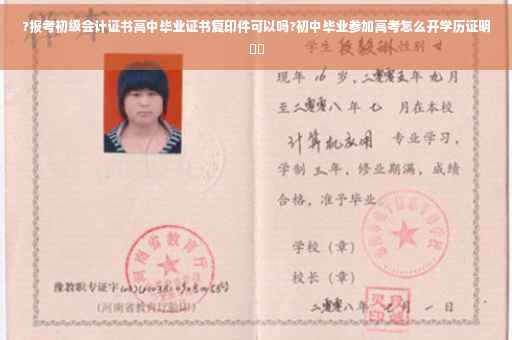 ?报考初级会计证书高中毕业证书复印件可以吗?初中毕业参加高考怎么开学历证明
学生 性别 女
现年 16 岁，二零零五年 九 月
至二零零八 年 七 月在本校
计算机应用 专业学习，
学制 三 年，修业期满，成绩
合格，准予毕业
学校（章）
校长（章）
二零零八年 七 月 一 日
河南省教育厅
豫教职专证字
（河南省教育厅验印）